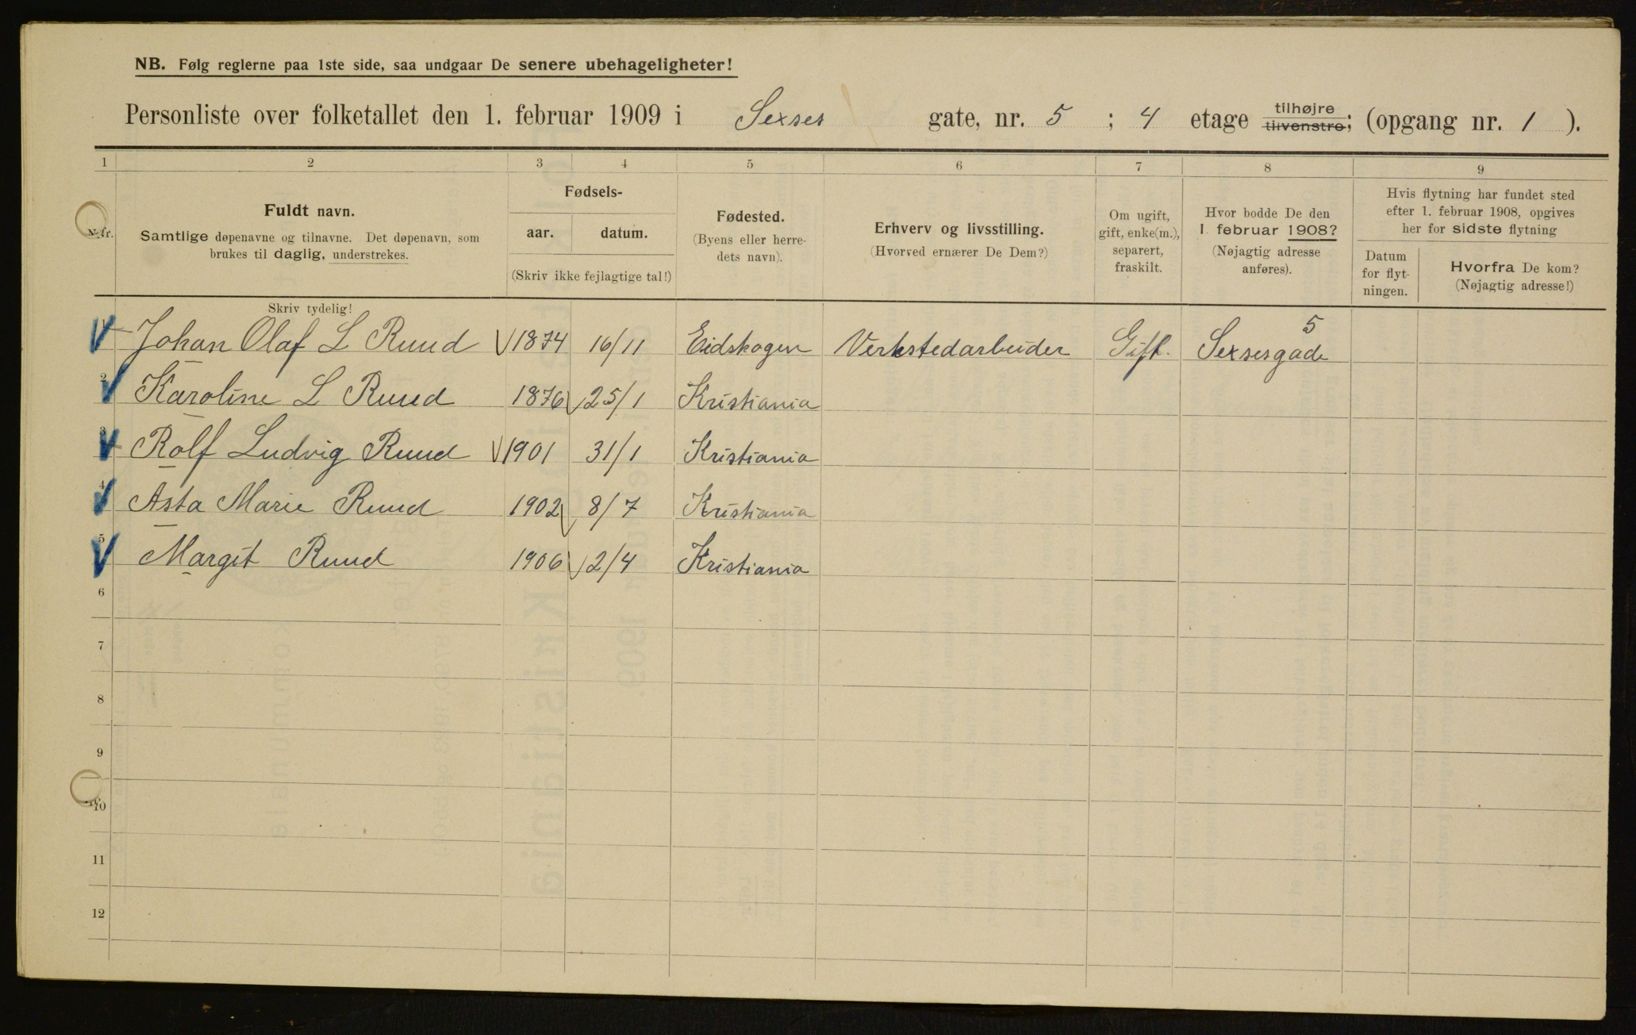 NB. Følg reglerne paa 1ste side, saa undgaar De senere ubehageligheter!
Personliste over folketallet den 1. februar 1909 i Sexses gate, nr. 5 ; 4 etage tilhøjre tilvenstre; (opgang nr. 1 ).
1 2 3 4 5 6 7 8 9
Fuldt navn.
Samtlige døpenavne og tilnavne. Det døpenavn, som
brukes til daglig, understrekes.
Fødsels-
aar. datum.
(Skriv ikke fejlagtige tal!)
Fødested.
(Byens eller herre-
dets navn).
Erhverv og livsstilling.
(Hvorved ernærer De Dem?)
Om ugift,
gift, enke(m.),
separert,
fraskilt.
Hvor bodde De den
1. februar 1908?
(Nøjagtig adresse
anføres).
Hvis flytning har fundet sted
efter 1. februar 1908, opgives
her for sidste flytning
Datum
for flyt-
ningen.
Hvorfra De kom?
(Nøjagtig adresse!)
Skriv tydelig!
1 Johan Olaf L Ruud 1874 16/11 Eidskogen Verkstedarbeider Gift. Sexsesgade 5
2 Karoline L Ruud 1876 25/1 Kristiania
3 Rolf Ludvig Ruud 1901 31/1 Kristiania
4 Asta Marie Ruud 1902 8/7 Kristiania
5 Margit Ruud 1906 2/4 Kristiania
6
7
8
9
10
11
12